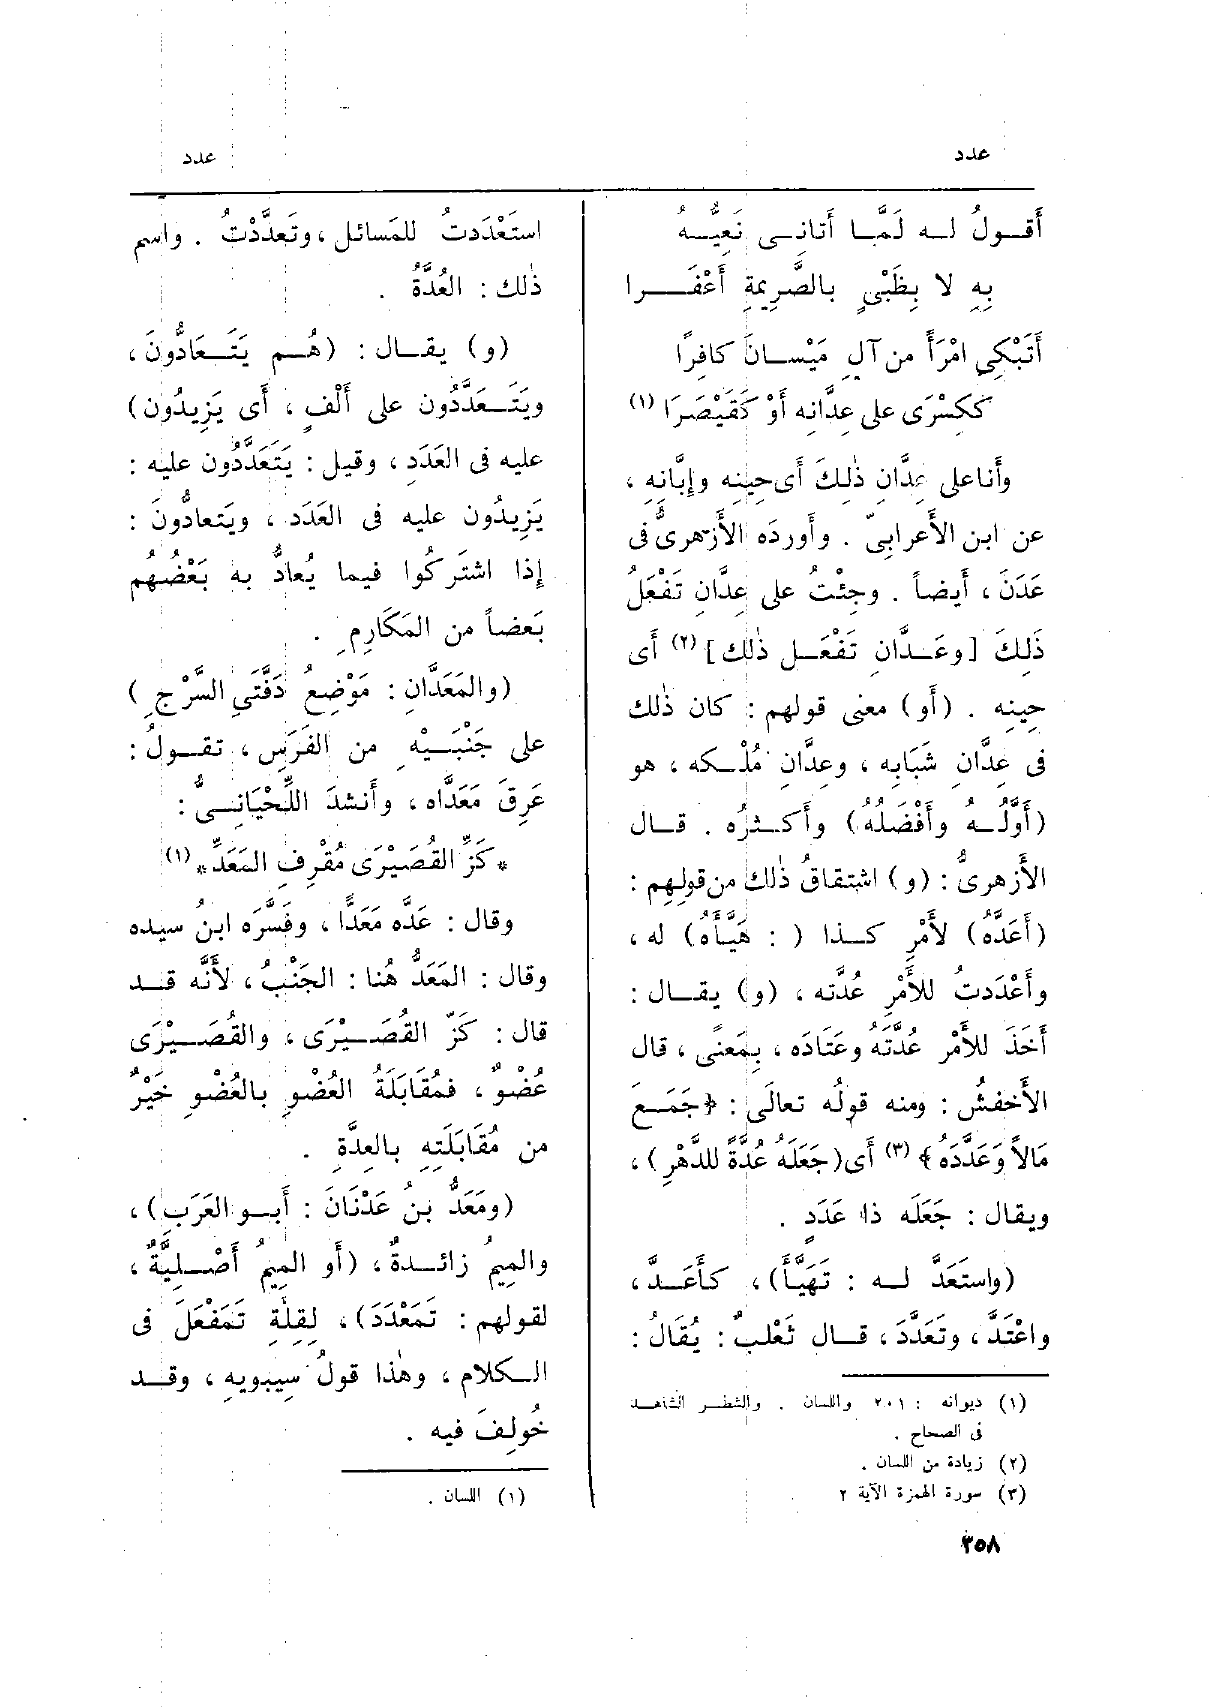 عدد
عدد
أَقولُ له لَمَّا أَتانِى نَعِيُّهُ
بِهِ لا بِظَبْىٍ بالصَّرِيمَةِ أَعْفَرا
أَتَبْكِى امْرَأً من آلِ مَيْسانَ كافِرًا
ككِسْرَى على عِدَّانِه أَوْ كَقَيْصَرَا (١)
وأَنا على عِدَّانِ ذٰلِكَ أَى حِينِه وإِبَّانِهِ ،
عن ابن الأَعرابىّ . وأَوردَه الأَزهرىُّ فى
عَدَنَ ، أَيضاً . وجِئْتُ على عِدَّانِ تَفْعَلُ
ذَلِكَ [وعَدَّانِ تَفْعَل ذٰلك] (٢) أَى
حِينِه . (أَو) معنى قولهم : كان ذٰلك
فى عِدَّانِ شَبَابِه ، وعِدَّانِ مُلْكه ، هو
(أَوَّلُه وأَفْضَلُهُ) وأَكثرُه . قال
الأَزهرىُّ : (و) اشتقاقُ ذٰلك من قولِهم :
(أَعَدَّهُ) لأَمْرِ كذا ( : هَيَّأَهُ) له ،
وأَعْدَدتُ للأَمْرِ عُدَّته ، (و) يقال :
أَخَذَ للأَمْرِ عُدَّتَهُ وعَتَادَه ، بِمَعنًى ، قال
الأَخفشُ : ومنه قولُه تعالَى : ﴿جَمَعَ
مَالاً وَعَدَّدَهُ﴾ (٣) أَى (جَعَلَهُ عُدَّةً للدَّهْرِ) ،
ويقال : جَعَلَه ذا عَدَدٍ .
(واستَعَدَّ له : تَهَيَّأَ) ، كأَعَدَّ ،
واعْتَدَّ ، وتَعَدَّدَ ، قال ثَعْلبٌ : يُقَالُ :
(١) ديوانه : ٢٠١ واللسان . والشطر الشاهد
فى الصحاح .
(٢) زيادة من اللسان .
(٣) سورة الهمزة الآية ٢
استَعْدَدتُ للمَسائل ، وتَعدَّدْتُ . واسم
ذٰلك : العُدَّةُ .
(و) يقال : (هُم يَتَعَادُّونَ ،
ويَتَعدَّدُون على أَلْفٍ ، أَى يَزِيدُون)
عليه فى العَدَدِ ، وقيل : يَتَعَدَّدُون عليه :
يَزِيدُون عليه فى العَدَد ، ويَتعادُّونَ :
إِذا اشتَركُوا فيما يُعادُّ به بَعْضُهُم
بَعضاً من المَكَارِمِ .
(والمَعَدَّانِ : مَوْضِعُ دَفَّتَىِ السَّرْجِ )
على جَنْبَيْهِ من الفَرَسِ ، تقولُ :
عَرِقَ مَعَدَّاه ، وأَنشدَ اللِّحْيَانِىُّ :
* كَزِّ القُصَيْرَى مُقْرِفِ المَعَدِّ * (١)
وقال : عَدَّه مَعَدًّا ، وفَسَّرَه ابنُ سيده
وقال : المَعَدُّ هُنا : الجَنْبُ ، لأَنَّه قد
قال : كَزّ القُصَيْرَى ، والقُصَيْرَى
عُضْوٌ ، فمُقَابَلَةُ العُضْوِ بالعُضْوِ خَيْرٌ
من مُقَابَلَتِهِ بالعِدَّةِ .
(ومَعَدُّ بنُ عَدْنَانَ : أَبو العَرَبِ) ،
والمِيمُ زائدةٌ ، (أَو المِيمُ أَصْلِيَّةٌ ،
لقولهم : تَمَعْدَدَ) ، لِقِلَّةِ تَمَفْعَلَ فى
الكلام ، وهٰذا قولُ سِيبويه ، وقد
خُولِفَ فيه .
(١) اللسان .
٣٥٨